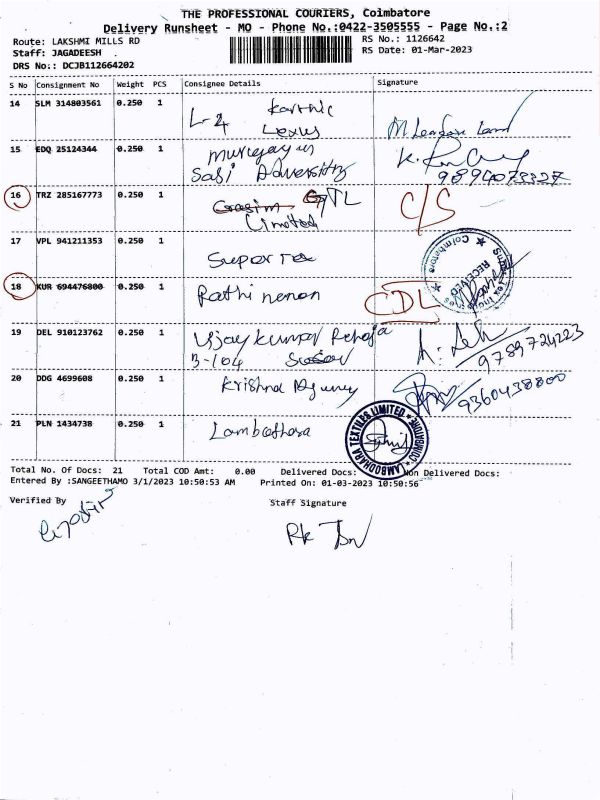 THE PROFESSIONAL COURIERS, Coimbatore
Delivery Runsheet - MO - Phone No.:0422-3505555 - Page No.:2
Route: LAKSHMI MILLS RD
RS No.: 1126642
Staff: JAGADEESH
RS Date: 01-Mar-2023
DRS No.: DCJB112664202
S No Consignment No Weight PCS Consignee Details Signature
14 SLM 314803561 0.250 1 L-4 Karthic
Lexus
15 EDQ 25124344 0.250 1 Murugayan
Sasi
9894073327
16 TRZ 285167773 0.250 1 Grasim GTL C/S
Limited
17 VPL 941211353 0.250 1 Superta
Coimbatore
RECEIVED
18 KUR 694476800 0.250 1 Rathi menon CDL
19 DEL 910123762 0.250 1 Vijay Kumar Reheja
B-104
9789724223
20 DDG 4699608 0.250 1 Krishna
9360438800
21 PLN 1434738 0.250 1 Lambothara
LAMBODHARA TEXTILES LIMITED COIMBATORE
Total No. Of Docs: 21 Total COD Amt: 0.00 Delivered Docs: Non Delivered Docs:
Entered By :SANGEETHAMO 3/1/2023 10:50:53 AM Printed On: 01-03-2023 10:50:56
Verified By Staff Signature